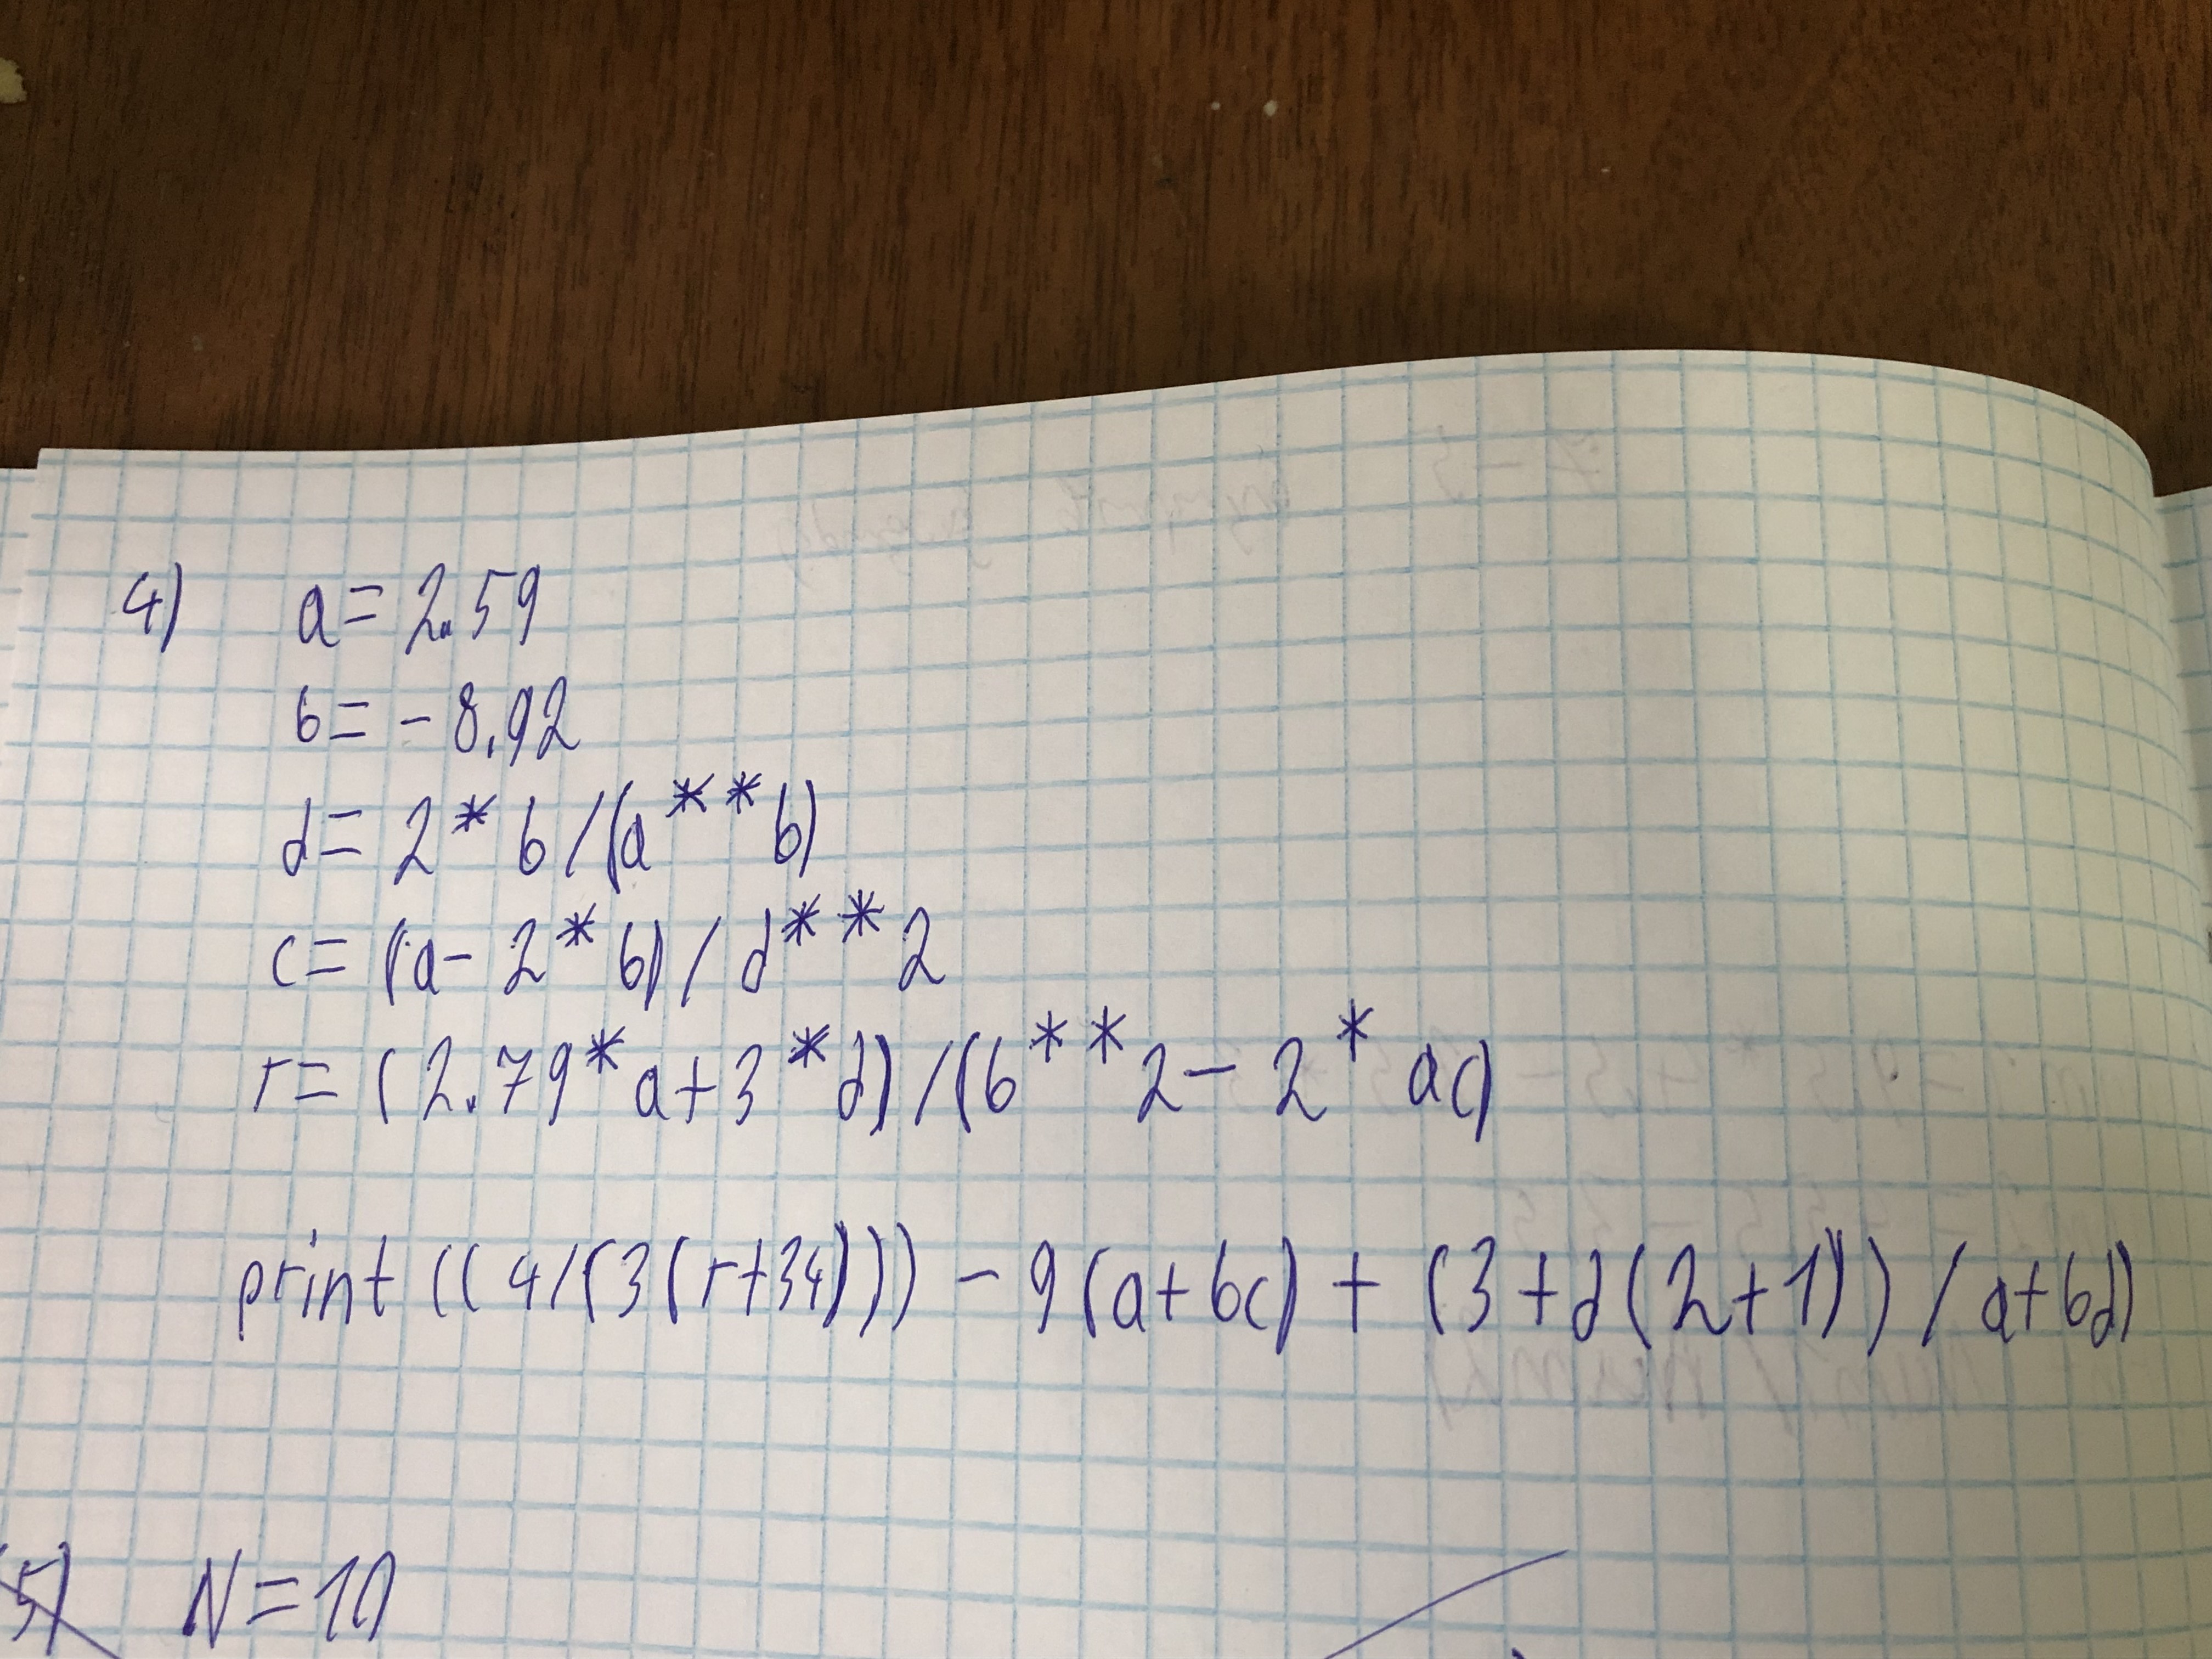 4) a = 2.59
b = - 8.92
d = 2 * b / (a ** b)
c = (a - 2 * b) / d ** 2
r = (2.79 * a + 3 * d) / (b ** 2 - 2 * ac)
print ((4/(3(r+34))) - 9(a+bc) + (3+d(2+1)) / a+bd)
5) N = 10